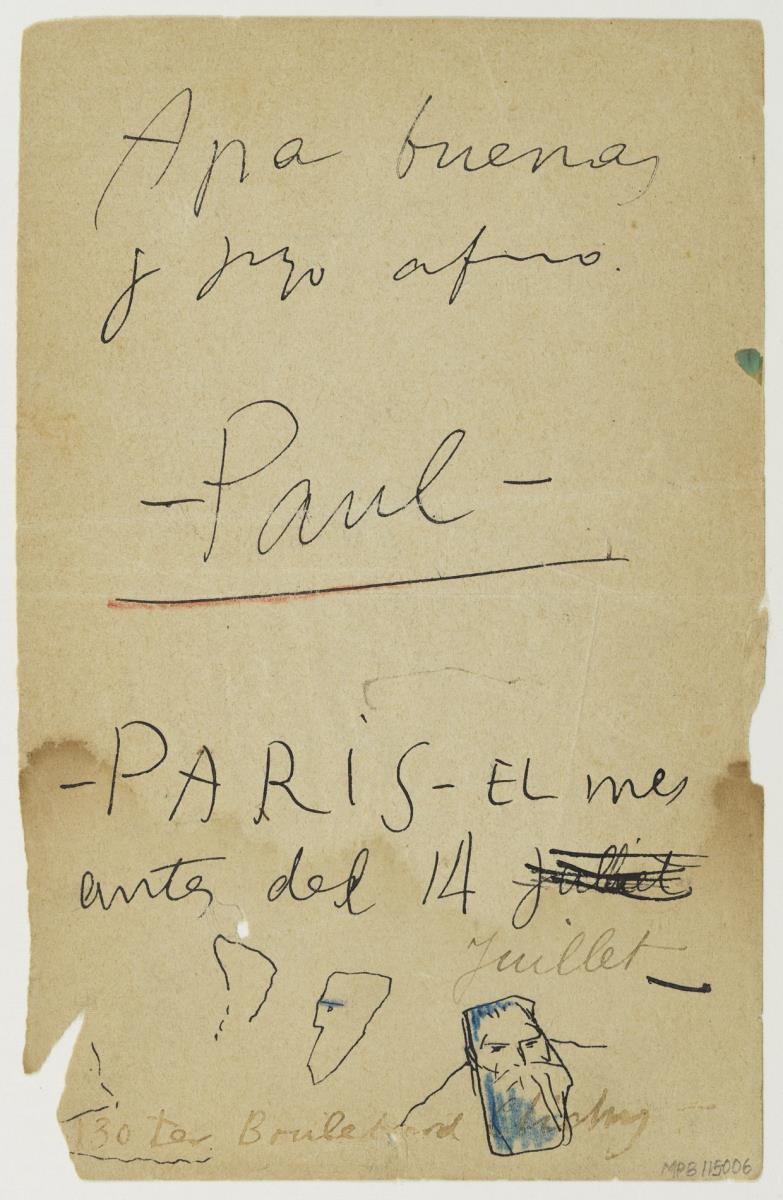 Apa buenas
y suyo afmo.
-Paul-
-PARiS- EL mes
antes del 14 Julliet
Juillet
130 ter Boulevard Clichy -
MPB 115006